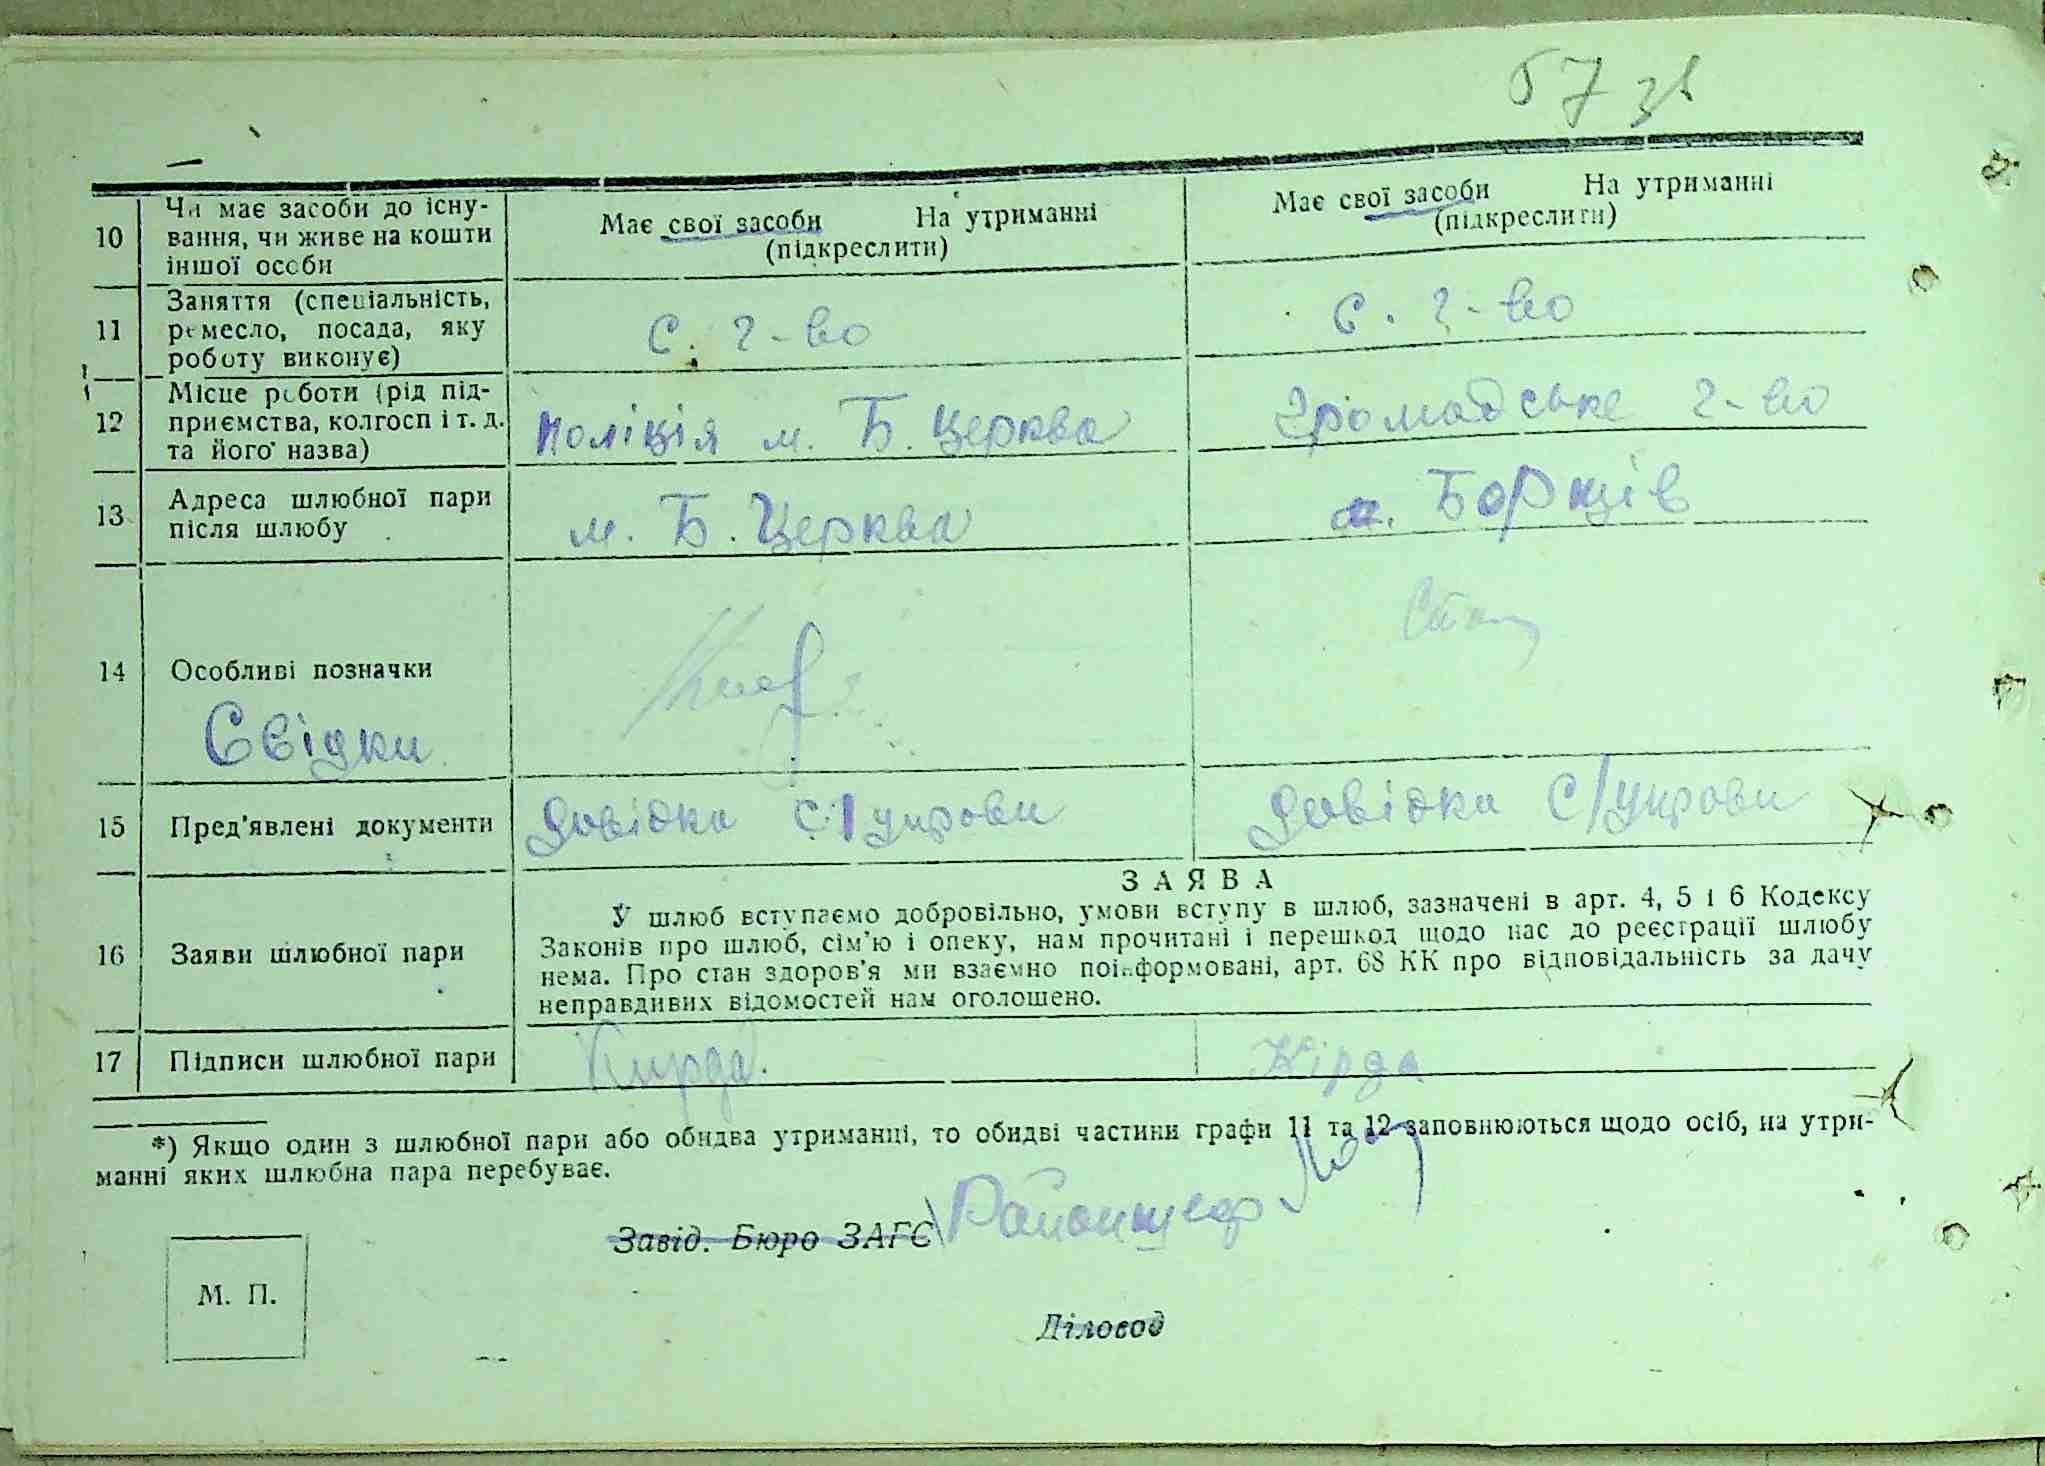 57 зв
10 Чи має засоби до існу-
вання, чи живе на кошти
іншої особи
Має свої засоби На утриманні
(підкреслити)
Має свої засоби На утриманні
(підкреслити)
11 Заняття (спеціальність,
ремесло, посада, яку
роботу виконує)
с. г-во
с. г-во
12 Місце роботи (рід під-
приємства, колгосп і т. д.
та його назва)
поліція м. Б. Церква
Громадське г-во
13 Адреса шлюбної пари
після шлюбу
м. Б. Церква
Борщів
14 Особливі позначки
Свідки
15 Пред'явлені документи
Довідка с/управи
Довідка с/управи
16 Заяви шлюбної пари
ЗАЯВА
У шлюб вступаємо добровільно, умови вступу в шлюб, зазначені в арт. 4, 5 і 6 Кодексу
Законів про шлюб, сім'ю і опеку, нам прочитані і перешкод щодо нас до реєстрації шлюбу
нема. Про стан здоров'я ми взаємно поінформовані, арт. 68 КК про відповідальність за дачу
неправдивих відомостей нам оголошено.
17 Підписи шлюбної пари
Кирда.
Кірда
*) Якщо один з шлюбної пари або обидва утриманці, то обидві частини графи 11 та 12 заповнюються щодо осіб, на утри-
манні яких шлюбна пара перебуває.
Завід. Бюро ЗАГС Районшеф
М. П.
Діловод